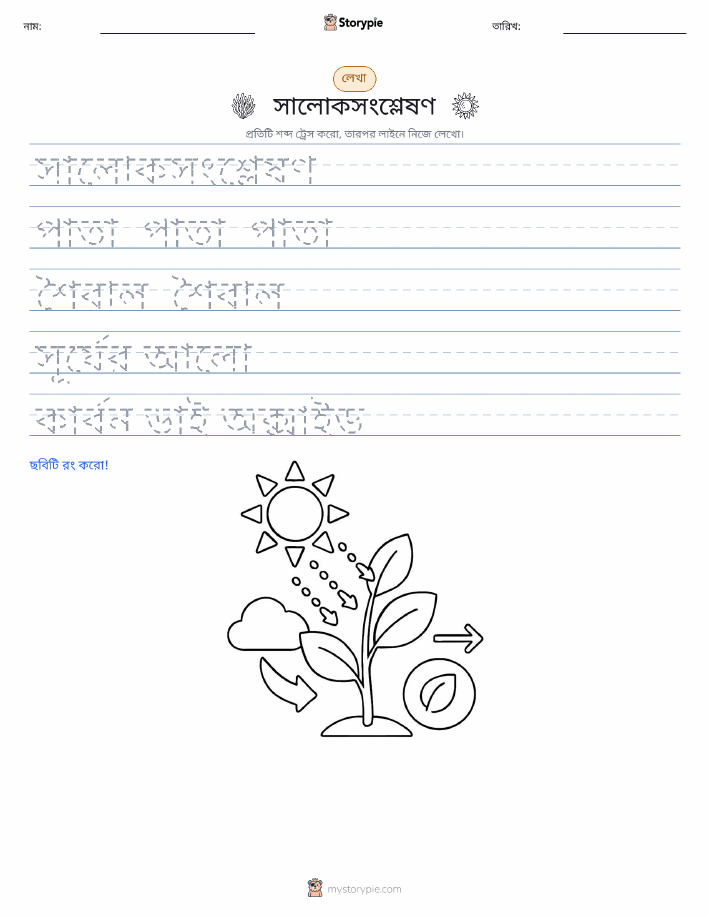 নাম: Storypie তারিখ:
লেখা
সালোকসংশ্লেষণ
প্রতিটি শব্দ ট্রেস করো, তারপর লাইনে নিজে লেখো।
সালোকসংশ্লেষণ
পাতা পাতা পাতা
শৈবাল শৈবাল
সূর্যের আলো
কার্বন ডাই অক্সাইড
ছবিটি রং করো!
mystorypie.com